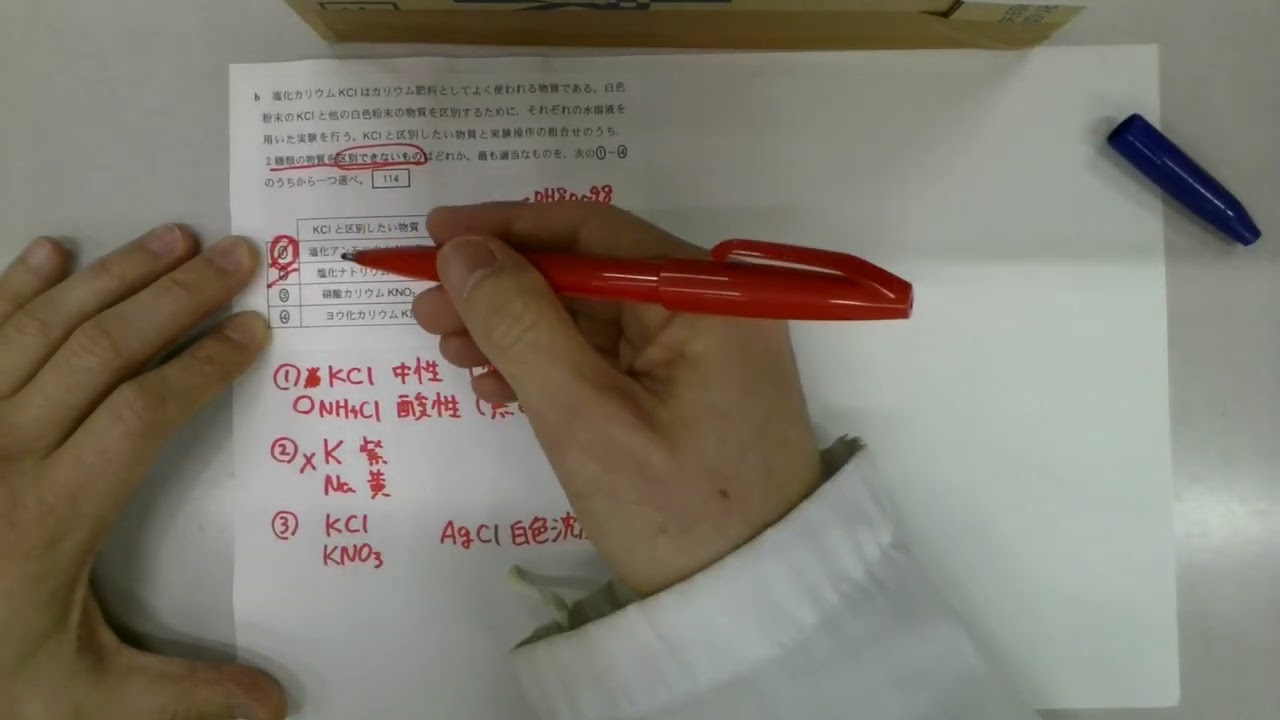 b 塩化カリウム KCl はカリウム肥料としてよく使われる物質である。白色
粉末の KCl と他の白色粉末の物質を区別するために，それぞれの水溶液を
用いた実験を行う。KCl と区別したい物質と実験操作の組合せのうち，
2種類の物質を区別できないものはどれか。最も適当なものを，次の①～④
のうちから一つ選べ。 114
KCl と区別したい物質
① 塩化アンモ
② 塩化ナトリウム
③ 硝酸カリウム KNO₃
④ ヨウ化カリウム K
① KCl 中性
○NH₄Cl 酸性 (
② × K 紫
Na 黄
③ KCl
KNO₃
AgCl 白色沈